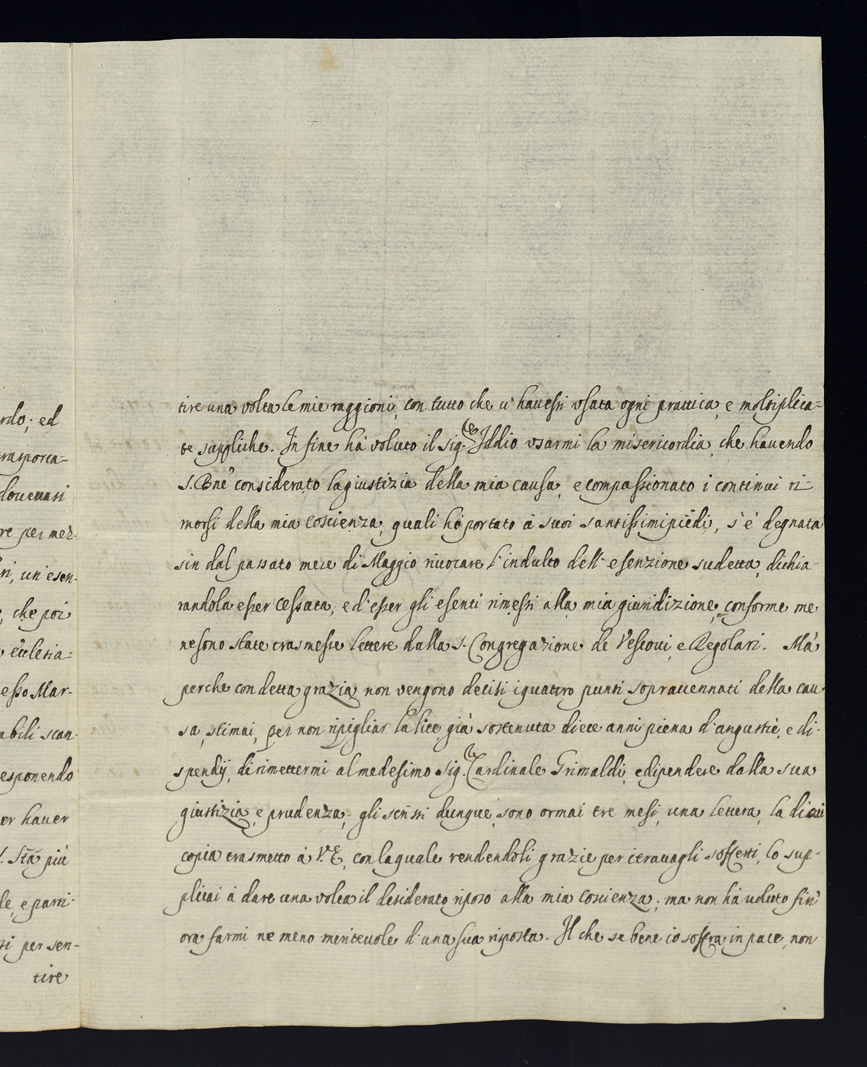 rdo; ed
rasporta-
dovevasi
re per mez-
ri, un'esen-
, che poi
ecclesia-
esso Mar-
abili scan-
esponendo
er haver
S. Stà più
le, e parti-
si per sen-
tire
tire una volta le mie raggioni, con tutto che v'havessi usata ogni prattica, e moltiplica=
te suppliche. In fine hà voluto il Sig.re Iddio usarmi la misericordia, che havendo
S. Bne considerato la giustizia della mia causa, e compassionato i continui ri-
morsi della mia coscienza, quali hò portato à suoi santissimi piedi, s'è degnata
sin dal passato mese di Maggio rivocare l'indulto dell'esenzione sudetta, dichia-
randola esser cessata, e d'esser gli esenti rimessi alla mia giuridizione, conforme me
ne sono state trasmesse lettere dalla S. Congregazione de Vescovi, e Regolari. Mà
perche con detta grazia non vengono decisi i quattro punti sopraccennati della cau
sa, stimai, per non ripigliar la lite già sostenuta diece anni piena d'angustie, e di-
spendij, di rimettermi al medesimo Sig.re Cardinale Grimaldi, e dipendere dalla sua
giustizia, e prudenza; gli scrissi dunque, sono ormai tre mesi, una lettera, la di cui
copia trasmetto à V.E., con la quale rendendoli grazie per i travagli sofferti, lo sup-
plicai à dare una volta il desiderato riposo alla mia coscienza; ma non hà voluto fin'
ora farmi ne meno meritevole d'una sua risposta. Il che se bene io soffra in pace, non